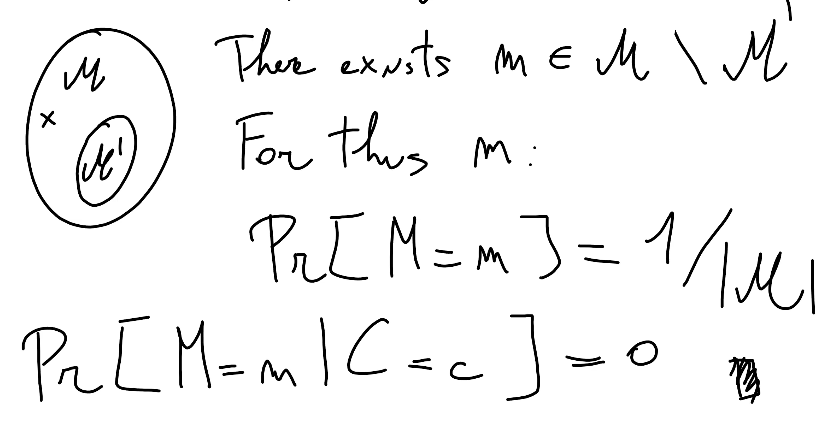 M
There exists m ∈ M \ M'
×
M'
For this m:
Pr[M=m] = 1/|M|
Pr[M=m|C=c] = 0